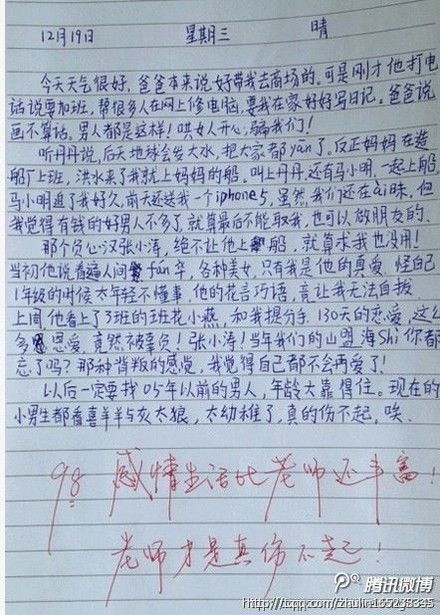 12月19日 星期三 晴
今天天气很好,爸爸本来说好带我去商场的,可是刚才他打电
话说要加班,帮很多人在网上修电脑,要我在家好好写日记。爸爸说
画不算话,男人都是这样!哄女人开心,骗我们!
听丹丹说,后天地球会发大水,把大家都yan了。反正妈妈在造
船厂上班,洪水来了我就上妈妈的船。叫上丹丹,还有马小明,一起上船,
马小明追了我好久,前天还送我一个iphone5,虽然,我们还在ai昧,但
我觉得有钱的好男人不多了,就算最后不能取我,也可以做朋友的。
那个负心汉张小涛,绝不让他上船,就算求我也没用!
当初他说看遍人间fan华,各种美女,只有我是他的真爱,怪自己
1年级的时候太年轻不懂事,他的花言巧语,竟让我无法自拔
上周,他看上了3班的班花小燕,和我提分手,130天的恋爱,这么
多恩爱,竟然被辜负!张小涛!当年我们的山盟海Shi你都
忘了吗?那种背叛的感觉,我觉得自己都不会再爱了!
以后一定要找05年以前的男人,年龄大靠得住。现在的
小男生都看喜羊羊与灰太狼,太幼稚了,真的伤不起,唉、
98 感情生活比老师还丰富!
老师才是真伤不起!
腾讯微博